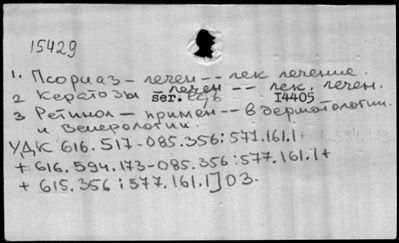 15429
1. Псориаз – лечен -- лек лечение.
2 Кератозы лечен -- лек. лечен.
ser. I4405
3 Ретинол – примен -- в дерматологии
и Венерологии.
УДК 616.517-085.356:577.161.1+
+ 616.594.173-085.356:577.161.1+
+ 615.356:577.161.1]03.